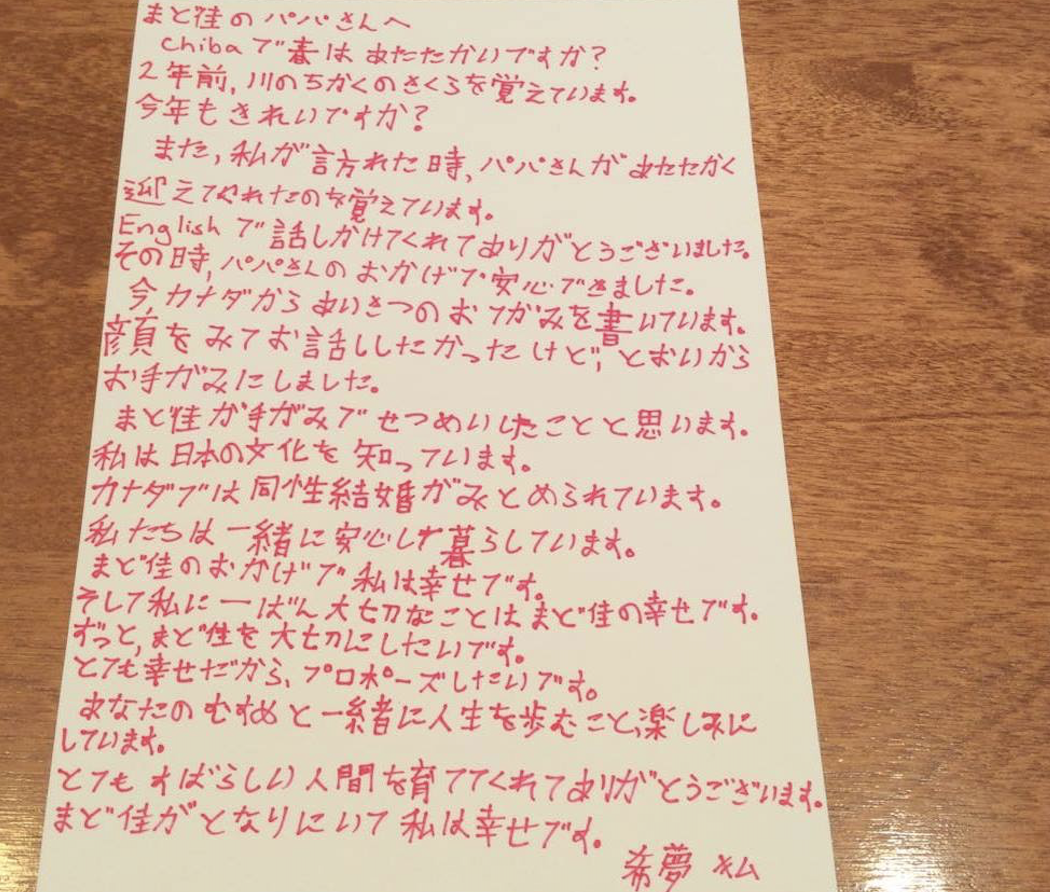 まど佳のパパさんへ
Chibaで春はあたたかいですか?
2年前,川のちかくのさくらを覚えています。
今年もきれいですか?
また,私が訪れた時,パパさんがあたたかく
迎えてくれたのを覚えています。
Englishで話しかけてくれてありがとうございました。
その時,パパさんのおかげで安心できました。
今,カナダからあいさつのおてがみを書いています。
顔をみてお話ししたかったけど,とおいから
お手がみにしました。
まど佳が手がみでせつめいしたことと思います。
私は日本の文化を知っています。
カナダでは同性結婚がみとめられています。
私たちは一緒に安心して暮らしています。
まど佳のおかげで私は幸せです。
そして私に一ばん大切なことはまど佳の幸せです。
ずっと,まど佳を大切にしたいです。
とても幸せだから、プロポーズしたいです。
あなたのむすめと一緒に人生を歩むこと,楽しみに
しています。
とてもすばらしい人間を育ててくれてありがとうございます。
まど佳がとなりにいて私は幸せです。
希夢 キム